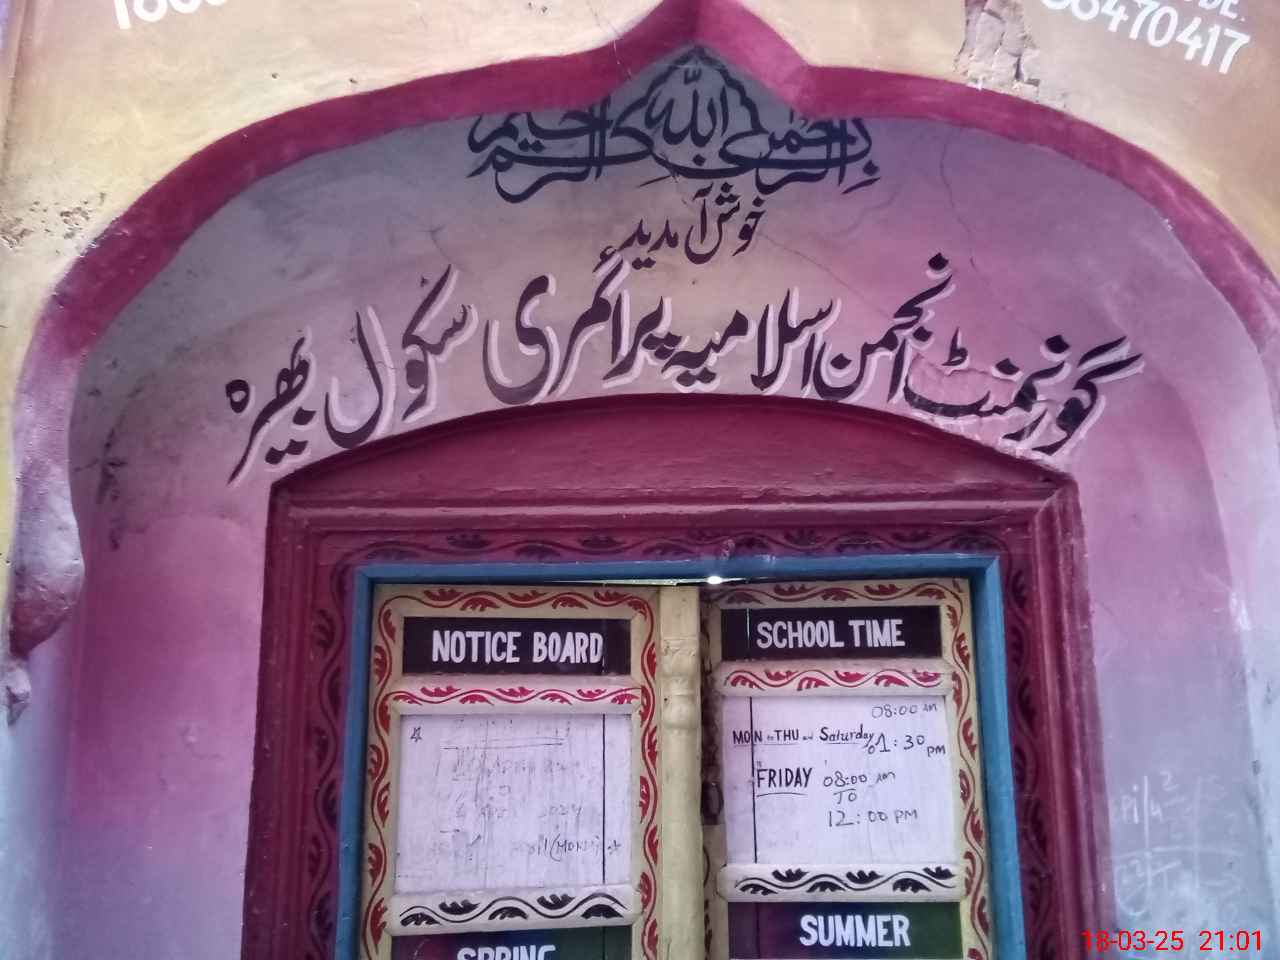 DE.
470417
بسم الله الرحمن الرحيم
خوش آمدید
گورنمنٹ انجمن اسلامیہ پرائمری سکول بھیرہ
NOTICE BOARD
SCHOOL TIME
08:00 AM
MON to THU and Saturday To 1:30 PM
FRIDAY 08:00 AM
TO
12:00 PM
2024
(MONDAY)
SPRING
SUMMER
18-03-25 21:01